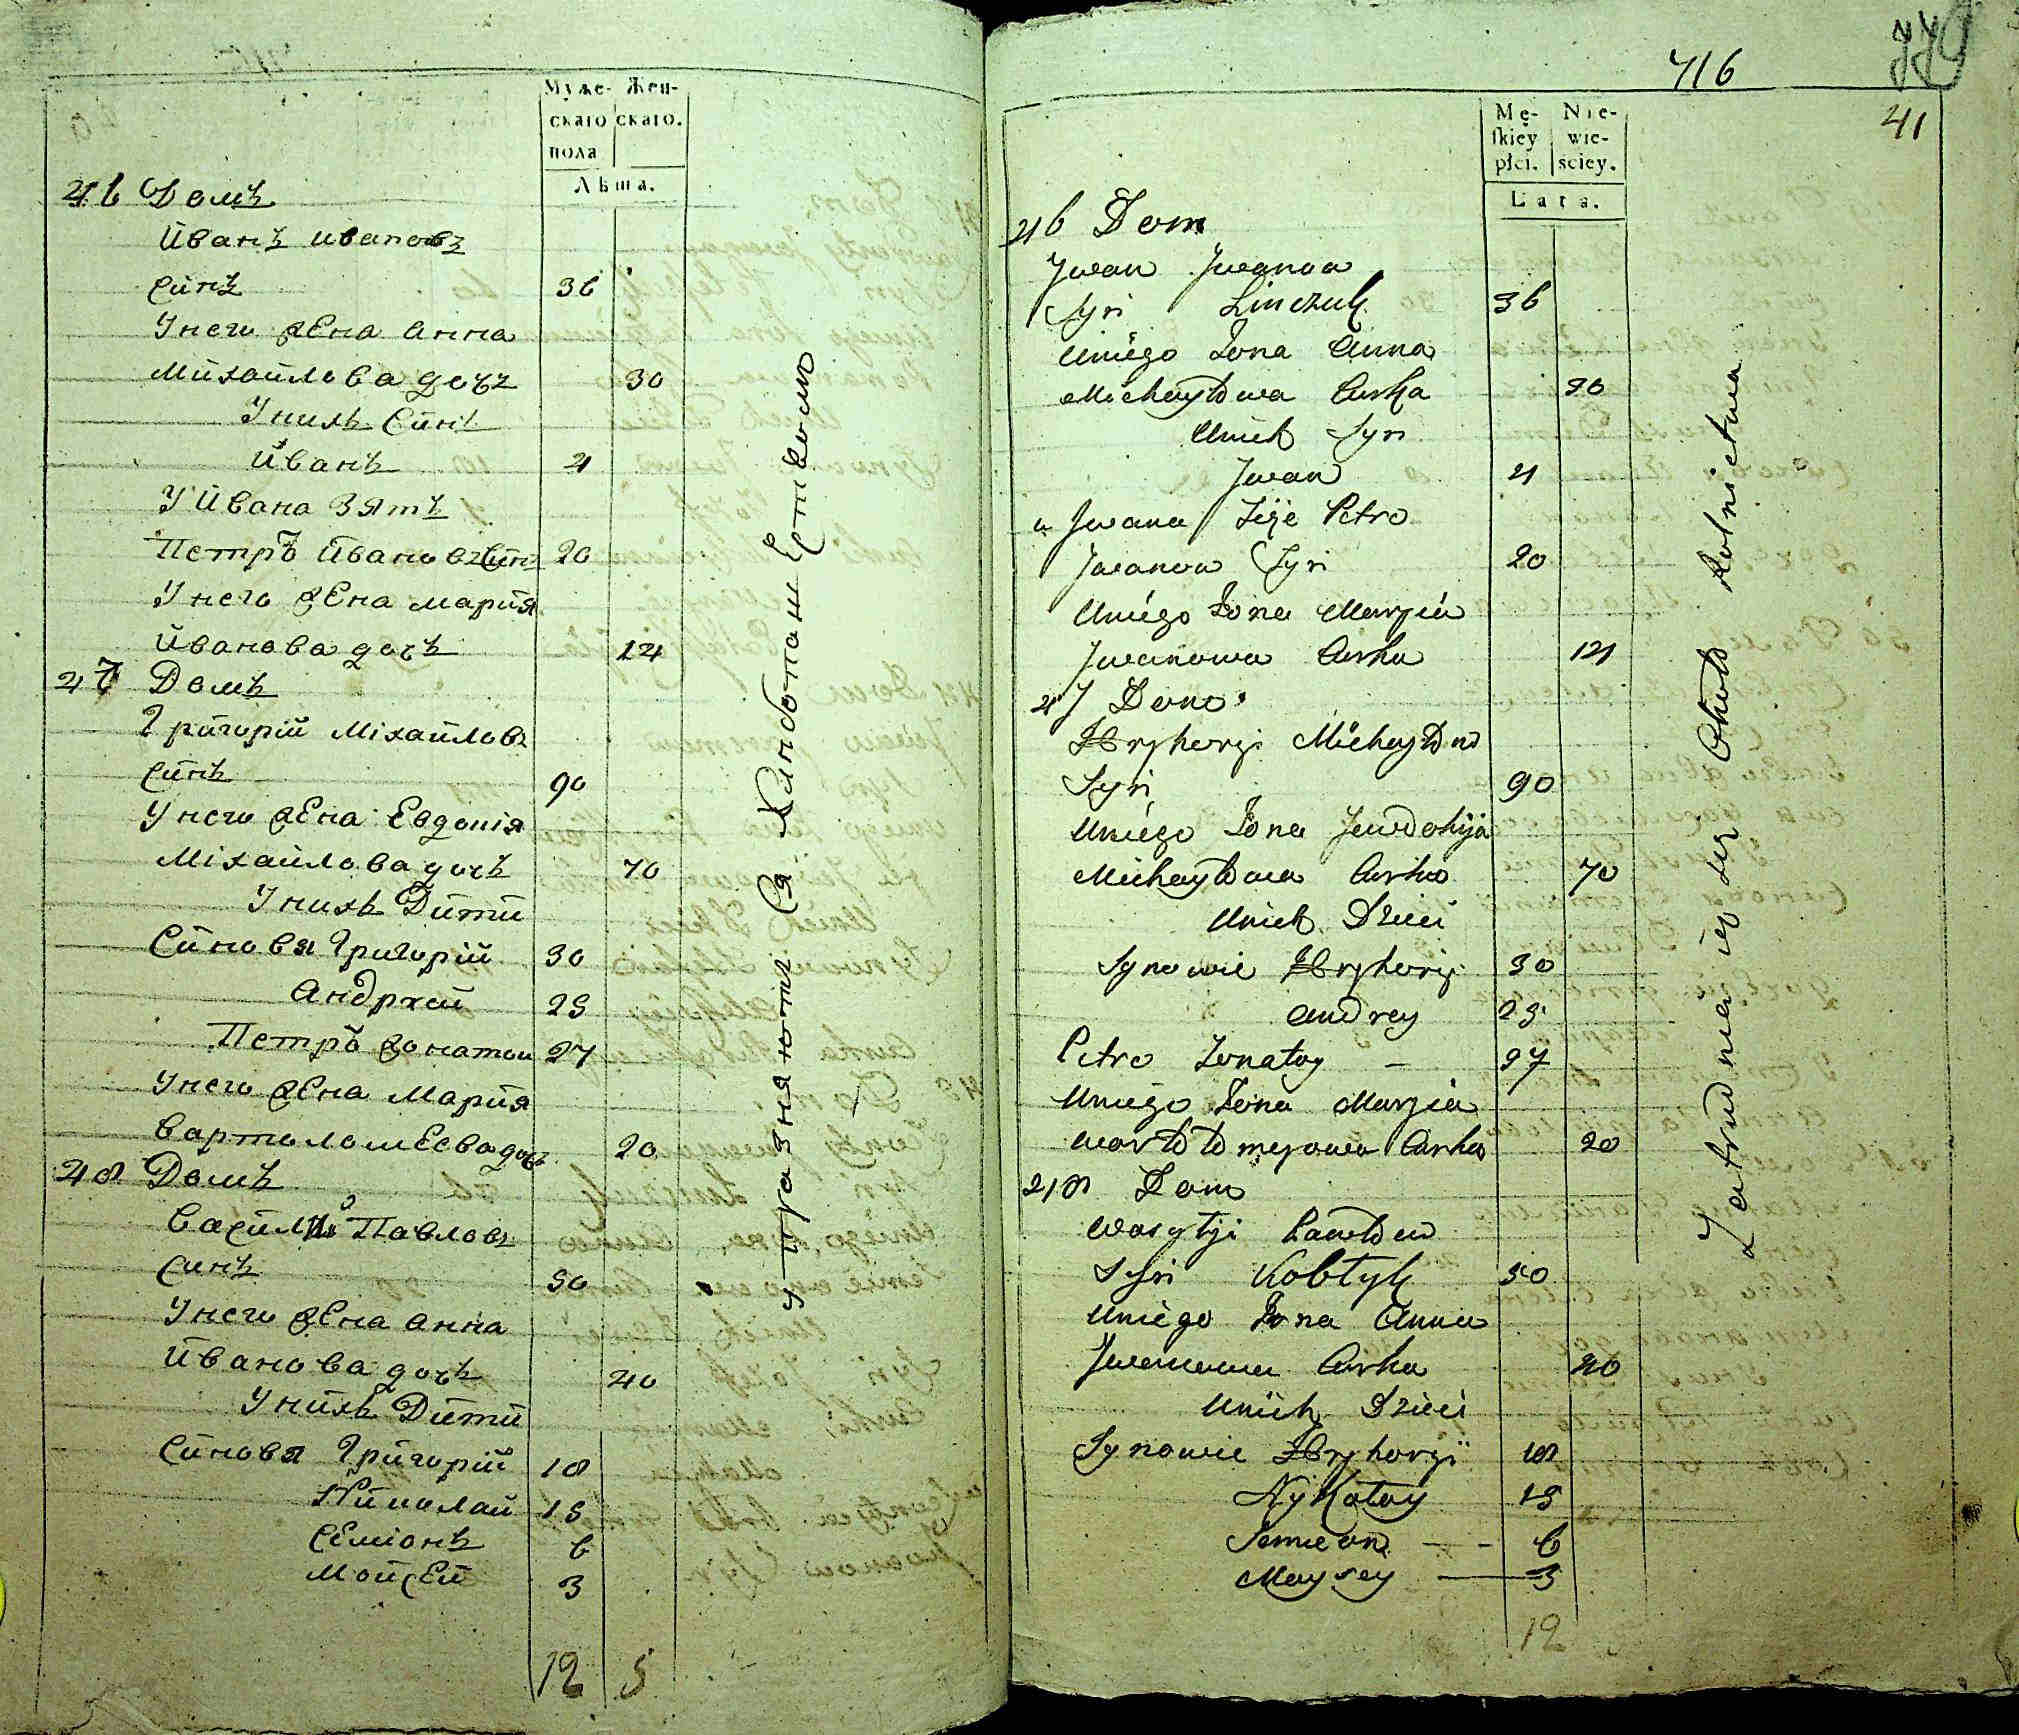 Муже- Жен-
скаго скаго.
пола
Лѣта.
46 Домъ
Йванъ ивановъ
Синъ 36
Унего жена анна
Михайлова дочъ 30
Унихъ Синъ
Йванъ 4
У Йвана Зятъ
Петръ Йвановъ Синъ 20
Унего жена мария
Йванова дочъ 14
47 Домъ
Григорій Міхайловъ
Синъ 90
Унего жена Евдокія
Міхайлова дочъ 70
Унихъ Дити
Синовя Григорій 30
Андрей 25
Петръ жонатой 27
Унего жена Мария
Вартоломеева дочъ 20
48 Домъ
Василій Павловъ
Синъ 50
Унего жена анна
Йванова дочъ 40
Унихъ Дити
Синовя Григорій 18
Николай 15
Семіонъ 6
Мойсей 3
12 5
упражняютъ Ся
716
41
Mę- Nie-
ſkiey wie-
płci. ściey.
Lata.
46 Dom
Jwan Jwanow
Syn Linczuk 36
Uniego Żona Anna
Michayłowa Curka 30
Unich Syn
Jwan 4
u Jwana Zięć Petro
Jwanow Syn 20
Uniego Żona Maryia
Jwanowa Curka 14
47 Dom
Hryhoryi Michayłow
Syn 90
Uniego Żona Jewdohija
Michayłowa Curka 70
Unich Dzieci
Synowie Hryhoryi 30
Andrey 25
Petro Żonaty – 27
Uniego Żona Maryia
Wartołomejowa Curka 20
48 Dom
Wasylyi Pawłow
Syn Kobłyk 50
Uniego Żona Anna
Jwanowa Curka 40
Unich Dzieci
Synowie Hryhoryi 18
Nykołay 15
Semeon – - 6
Moysey — 3
12
Zatrudniaią się Około Rolnictwa